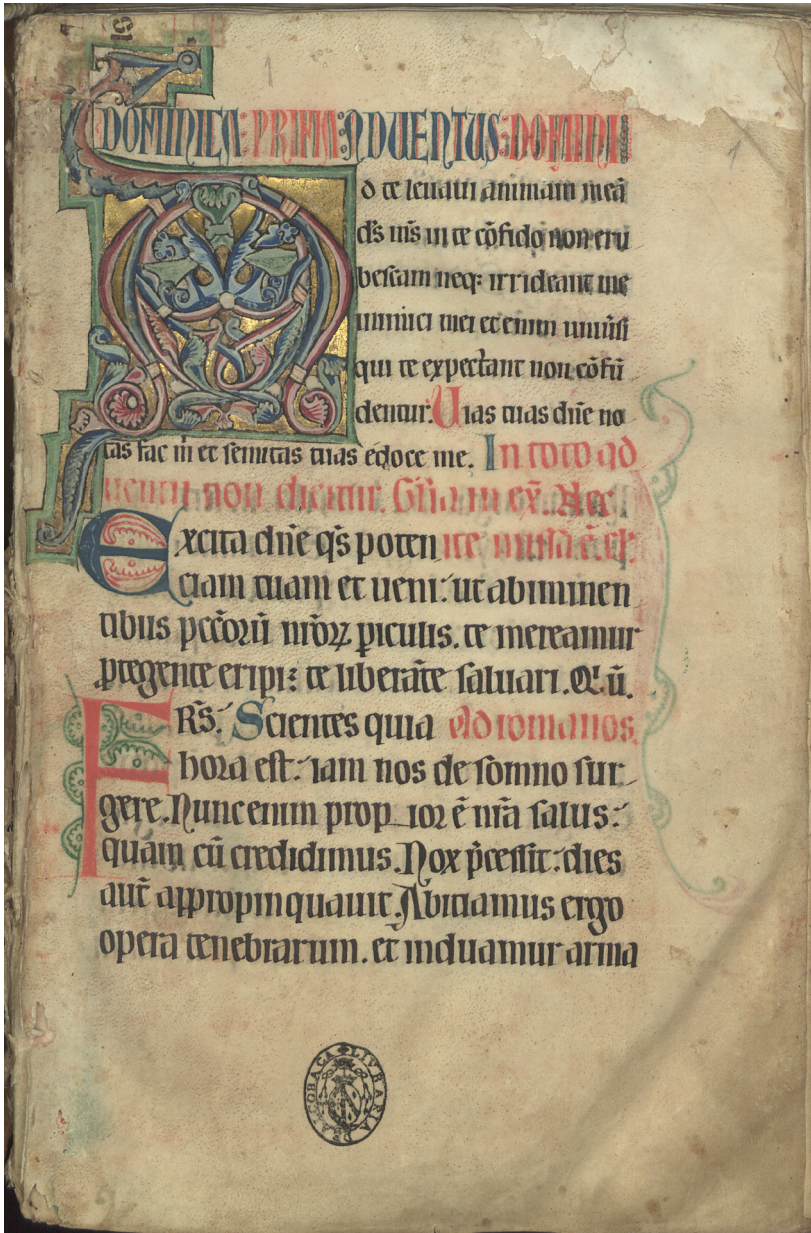 1
1
DOMINICA: PRIMA: ADUENTUS: DOMINI
D te leuaui animam meā
d̄s m̄s in te cōfido non eru
bescam neq; irrideant me
inimici mei et enim uniūsi
qui te expectant non cōfū
dentur. Uias tuas dn̄e no
tas fac m̄ et semitas tuas edoce me. In toto ad
uentu non dicitur. Gl̄ia in ex̄. Nec
Excita dn̄e q̄s poten ite missa ē. ł
ciam tuam et ueni: ut ab immin en
tibus pccōrū nr̄oꝝ ꝑiculis. te mereamur
ꝓtegente eripi: te liberāte saluari. Q̇ū.
FRS̄. Scientes quia Ad romanos.
hora est: iam nos de somno sur
gere. Nunc enim propior ē nr̄a salus:
quam cū credidimus. Nox p̄cessit: dies
aut̄ appropinquauit. Abiciamus ergo
opera tenebrarum. et induamur arma
LIVRARIA DE ALCOBAÇA